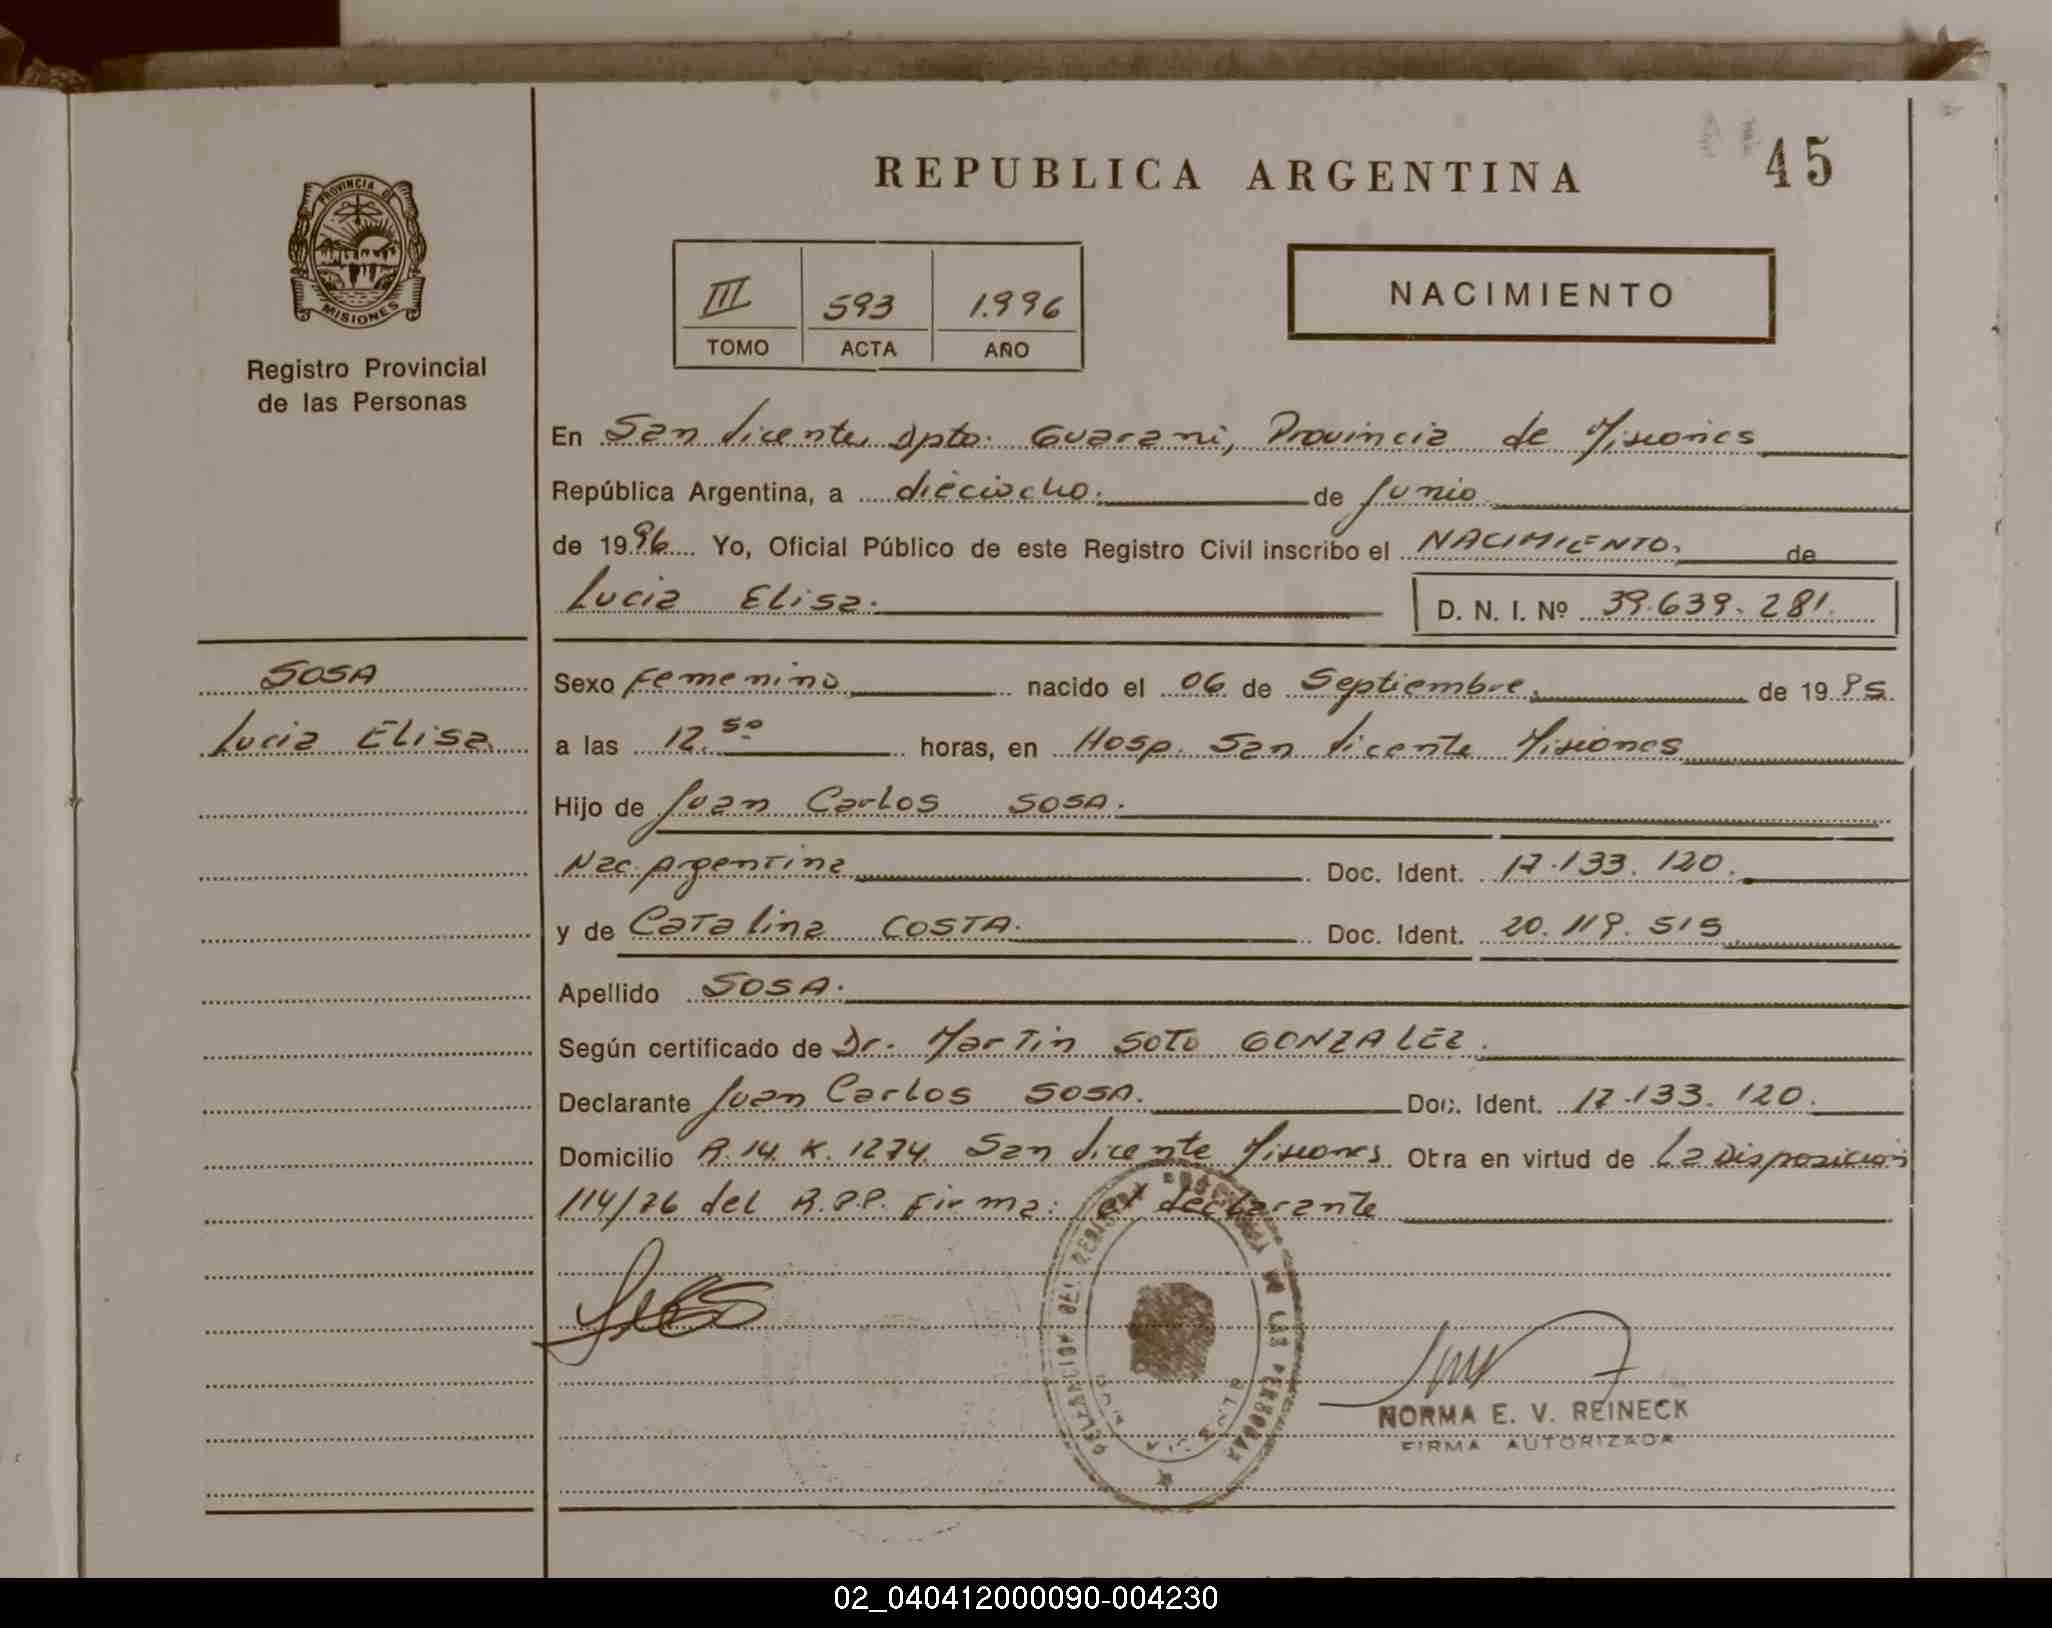 REPUBLICA ARGENTINA
45
PROVINCIA DE
MISIONES
Registro Provincial
de las Personas
III 593 1.996
TOMO ACTA AÑO
NACIMIENTO
En San Vicente, Dpto. Guarani, Provincia de Misiones
República Argentina, a dieciocho. de Junio
de 1996 Yo, Oficial Público de este Registro Civil inscribo el NACIMIENTO. de
Lucia Elisa. D. N. I. Nº 39.639.281.
SOSA
Lucia Elisa
Sexo Femenino nacido el 06 de Septiembre, de 1995
a las 12.50 horas, en Hosp. San Vicente Misiones
Hijo de Juan Carlos SOSA.
Nac. Argentina Doc. Ident. 17.133.120.
y de Catalina COSTA. Doc. Ident. 20.119.515
Apellido SOSA.
Según certificado de Dr. Martin SOTO GONZALEZ.
Declarante Juan Carlos SOSA. Doc. Ident. 17.133.120.
Domicilio R.14 K. 1274 San Vicente Misiones Obra en virtud de La Disposicion
114/76 del R.P.P. Firma: el declarante
DELEGACION DEL REGISTRO DE LAS PERSONAS
NORMA E. V. REINECK
FIRMA AUTORIZADA
02_040412000090-004230